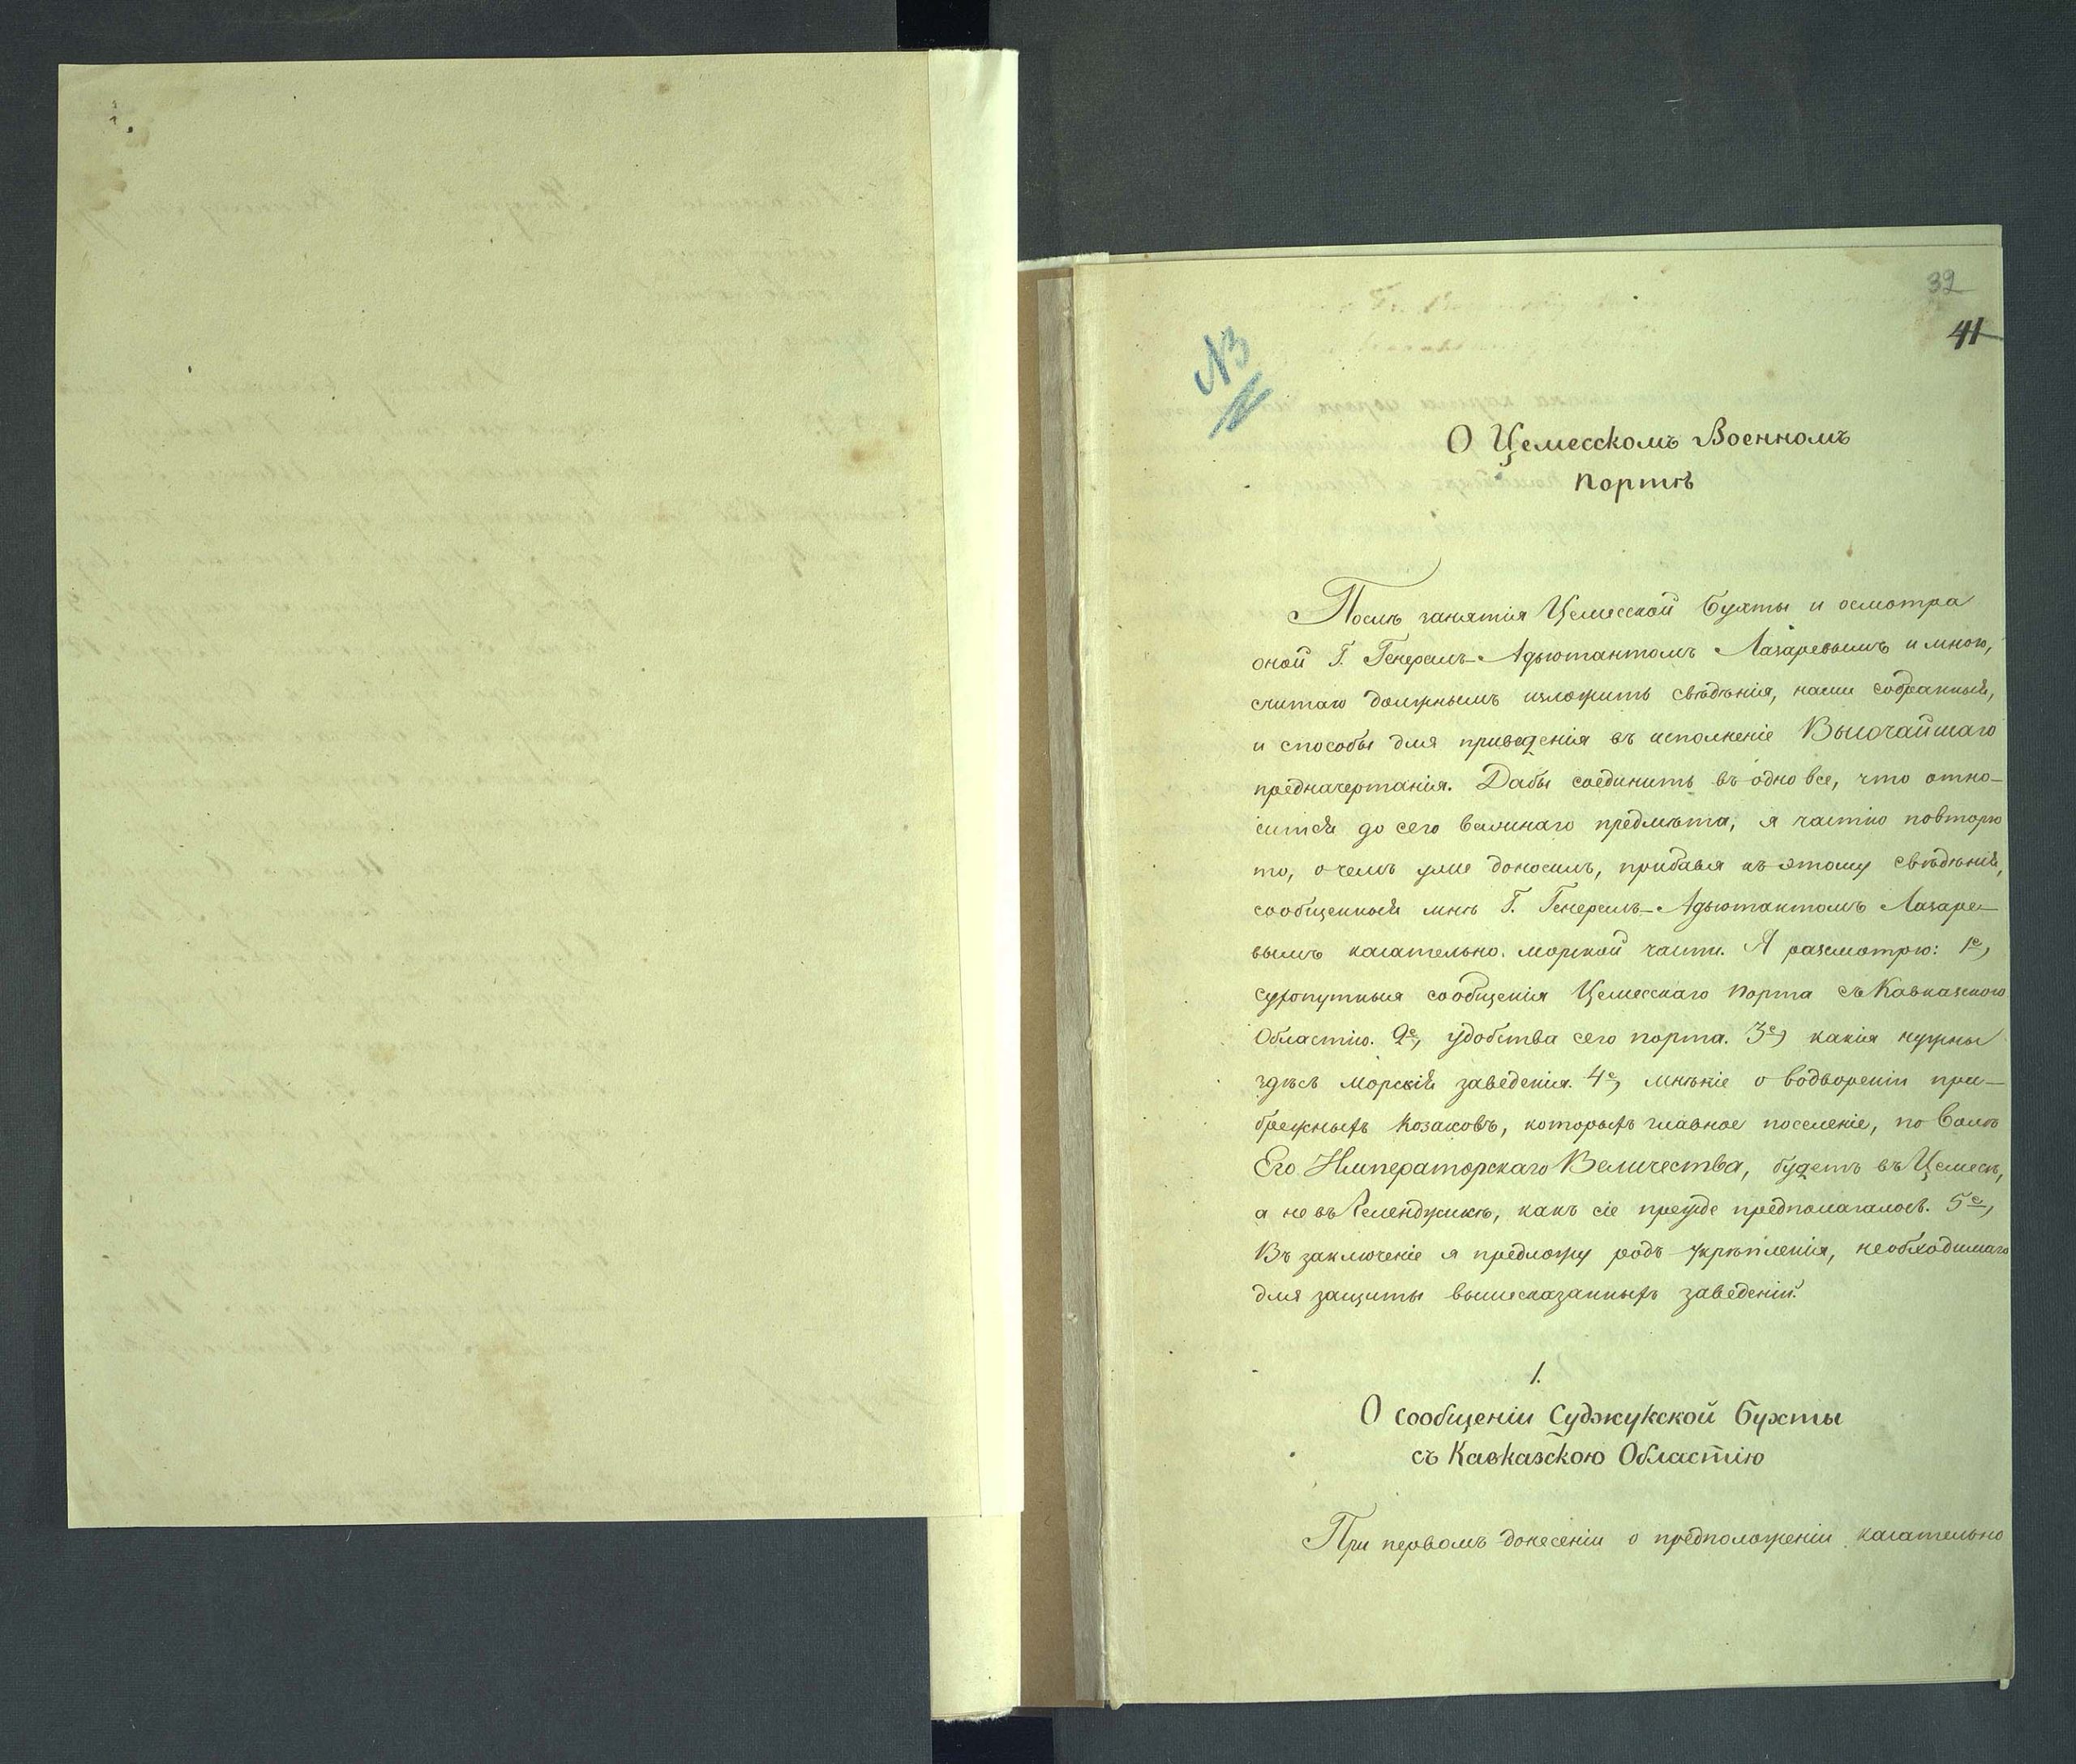 32
41
N3
О Цемесскомъ Военномъ
портѣ
Послѣ занятія Цемесской бухты и осмотра
оной Г. Генералъ-Адъютантомъ Лазаревымъ и мною,
считаю должнымъ изложить свѣдѣнія, нами собранныя,
и способы для приведенія въ исполненіе Высочайшаго
предначертанія. Дабы соединить въ одно все, что отно-
сится до сего важнаго предмѣта, я частію повторю
то, о чемъ уже доносилъ, прибавя къ этому свѣдѣнія,
сообщенныя мнѣ Г. Генералъ-Адъютантомъ Лазаре-
вымъ касательно морской части. Я разсмотрю: 1е,
сухопутныя сообщенія Цемесскаго порта съ Кавказскою
Областію. 2е, удобства сего порта. 3е, какія нужны
здѣсь морскія заведенія. 4е, мнѣніе о водвореніи при-
брежныхъ Козаковъ, которыхъ главное поселеніе, по волѣ
Его Императорскаго Величества, будетъ въ Цемесѣ,
а не въ Геленджикѣ, какъ сіе прежде предполагалось. 5е,
Въ заключеніе я предложу родъ укрѣпленія, необходимаго
для защиты вышесказанныхъ заведеній.
1.
О сообщеніи Суджукской бухты
съ Кавказскою Областію
При первомъ донесеніи о предположеніи касательно